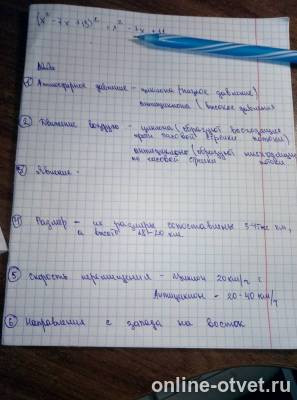 (x² - 7x + 13)²
① Атмосферное давление - циклона (низкое давление)
антициклона (высокое давление
② Движение воздуха - циклона (образуют восходящие
против часовой стрелки потоки)
антициклона (образуют нисходящие
по часовой стрелки потоки
③ Явление -
④ Размер - их размеры сопоставимы 3-4 тыс км,
а высота 18-20 км.
⑤ Скорость перемещения - Циклон 20 км/ч
Антициклон - 20-40 км/ч
⑥ Направления с запада на восток
online-otvet.ru